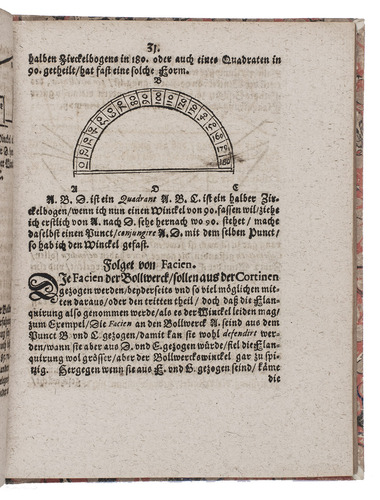 31.
halben Zirckelbogens in 180. oder auch eines Quadraten in
90. getheilt/hat fast eine solche Form.
B
10 20 30 40 50 60 70 80 90 100 110 120 130 140 150 160 170 180
A D C
A. B. D. ist ein Quadrant A. B. C. ist ein halber Zir-
ckelbogen/wenn ich nun einen Winckel von 90. fassen wil/ziehe
ich erstlich von A. nach D. sehe hernach wo 90. stehet / mache
daselbst einen Punct/conjungire A. D. mit dem selben Punct/
so hab ich den Winckel gefast.
Folget von Facien.
DJe Facien der Bollwerck/sollen aus der Cortinen
gezogen werden/beyderseits vnd so viel möglichen mit-
ten daraus/oder den tritten theil / doch daß die Flan-
quirung also genommen werde/als es der Winckel leiden mag/
zum Exempel/Die Facien an den Bollwerck A. seind aus dem
Punct B. vnd C. gezogen/damit kan sie wohl defendirt wer-
den/wann sie aber aus D. vnd E. gezogen würde/fiel die Flan-
quirung wol grösser/aber der Bollwerckswinckel gar zu spi-
tzig. Hergegen wenn sie aus F. vnd G. gezogen seind/ käme
die